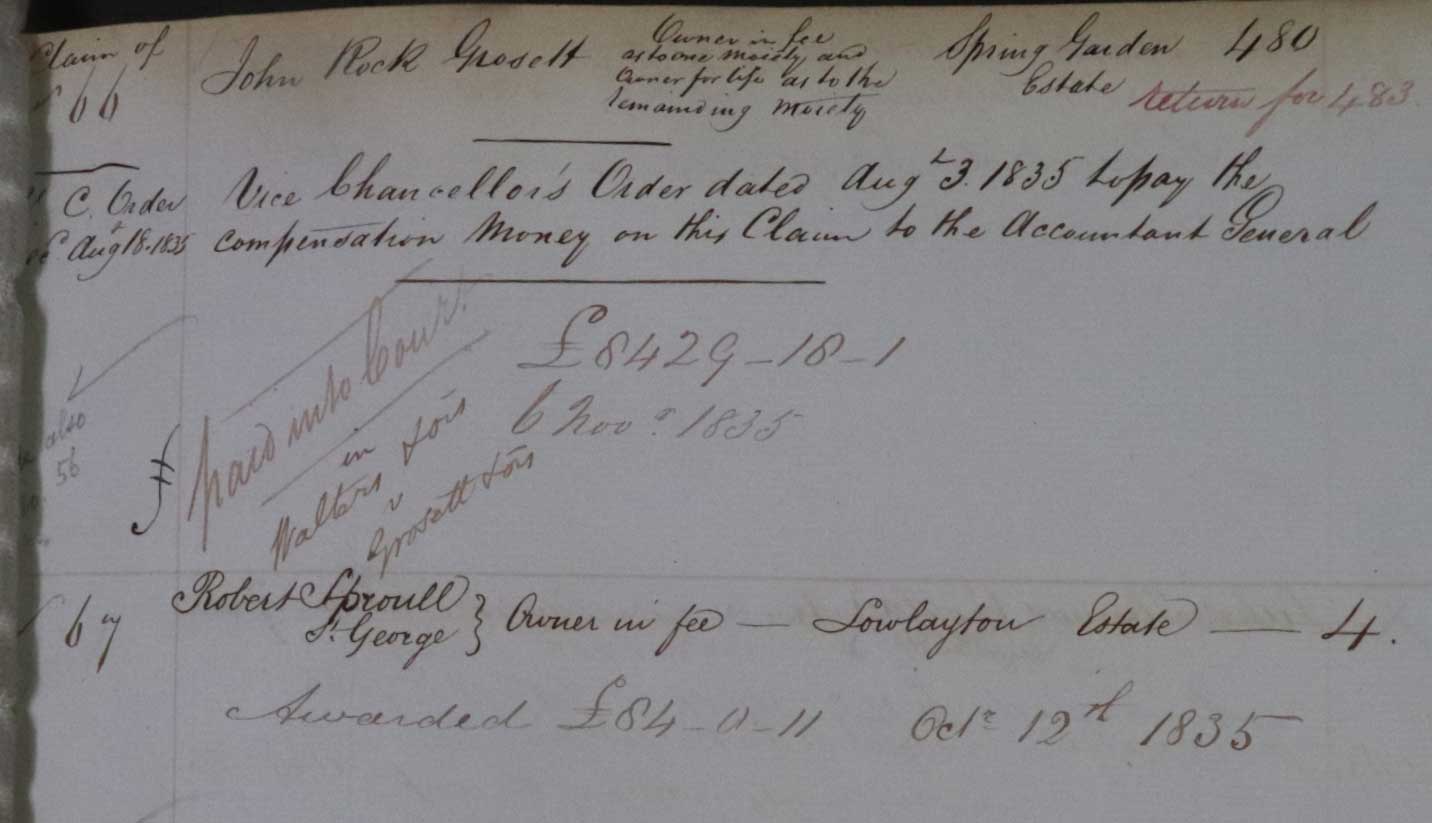 Claim of
66
John Rock Grosett
Owner in fee
as to one moiety and
Owner for life as to the
remainding moiety
Spring Garden 480
Estate
return for 483.
C. Order
Augt 18. 1835
Vice Chancellor's Order dated Augt 3. 1835 to pay the
compensation Money on this Claim to the Accountant General
paid into Court
in
Walters & ors
v
Grosett & ors
£8429-18-1
6 Novr. 1835
also
56
67
Robert Sproull
St. George } Owner in fee — Lowlayton Estate — 4.
Awarded £84-0-11 Octr 12th 1835